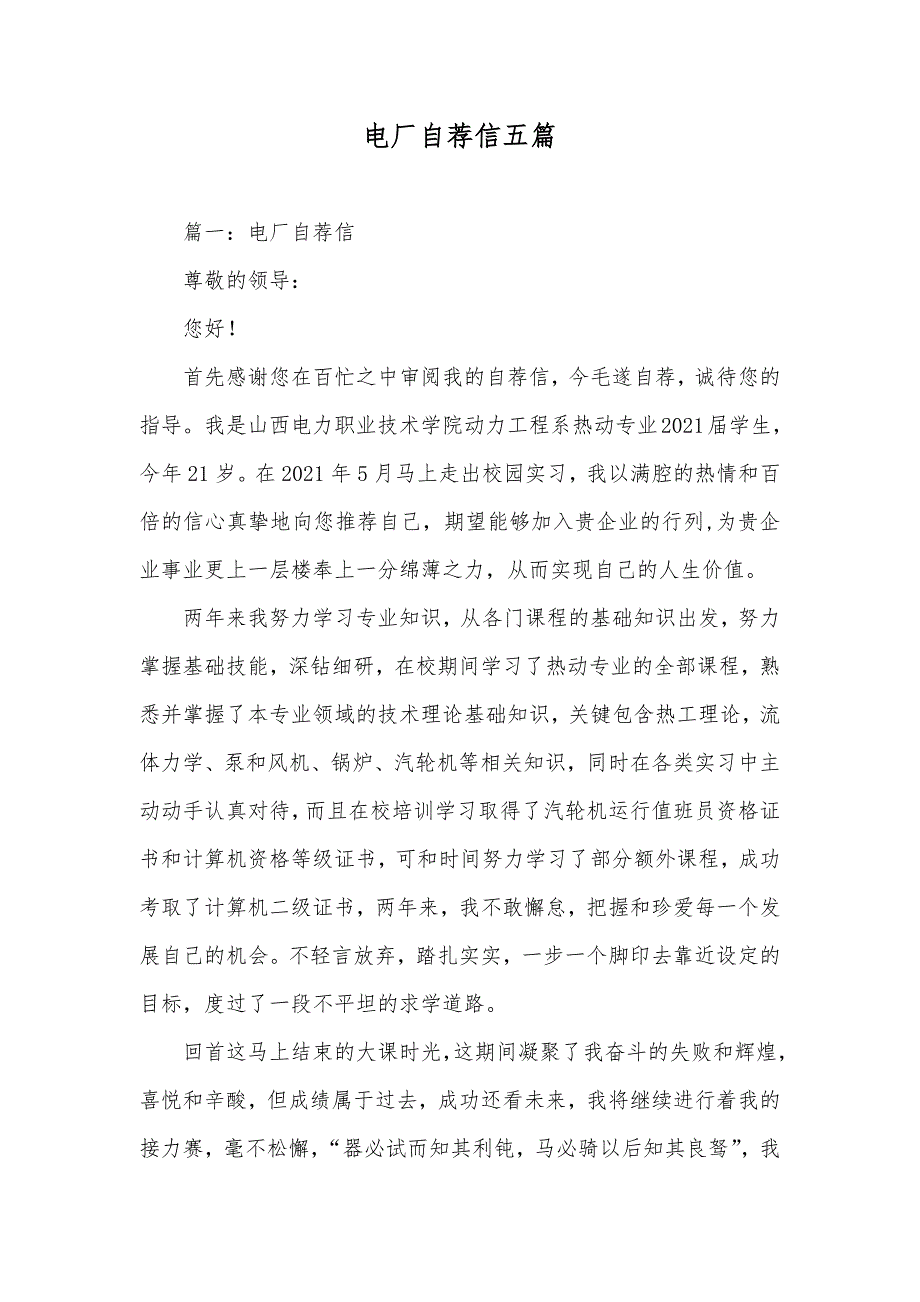 电厂自荐信五篇
篇一：电厂自荐信
尊敬的领导：
您好！
首先感谢您在百忙之中审阅我的自荐信，今毛遂自荐，诚待您的
指导。我是山西电力职业技术学院动力工程系热动专业2021届学生，
今年21岁。在2021年5月马上走出校园实习，我以满腔的热情和百
倍的信心真挚地向您推荐自己，期望能够加入贵企业的行列,为贵企
业事业更上一层楼奉上一分绵薄之力，从而实现自己的人生价值。
两年来我努力学习专业知识，从各门课程的基础知识出发，努力
掌握基础技能，深钻细研，在校期间学习了热动专业的全部课程，熟
悉并掌握了本专业领域的技术理论基础知识，关键包含热工理论，流
体力学、泵和风机、锅炉、汽轮机等相关知识，同时在各类实习中主
动动手认真对待，而且在校培训学习取得了汽轮机运行值班员资格证
书和计算机资格等级证书，可和时间努力学习了部分额外课程，成功
考取了计算机二级证书，两年来，我不敢懈怠，把握和珍爱每一个发
展自己的机会。不轻言放弃，踏扎实实，一步一个脚印去靠近设定的
目标，度过了一段不平坦的求学道路。
回首这马上结束的大课时光,这期间凝聚了我奋斗的失败和辉煌，
喜悦和辛酸，但成绩属于过去，成功还看未来，我将继续进行着我的
接力赛，毫不松懈，“器必试而知其利钝，马必骑以后知其良驽”，我